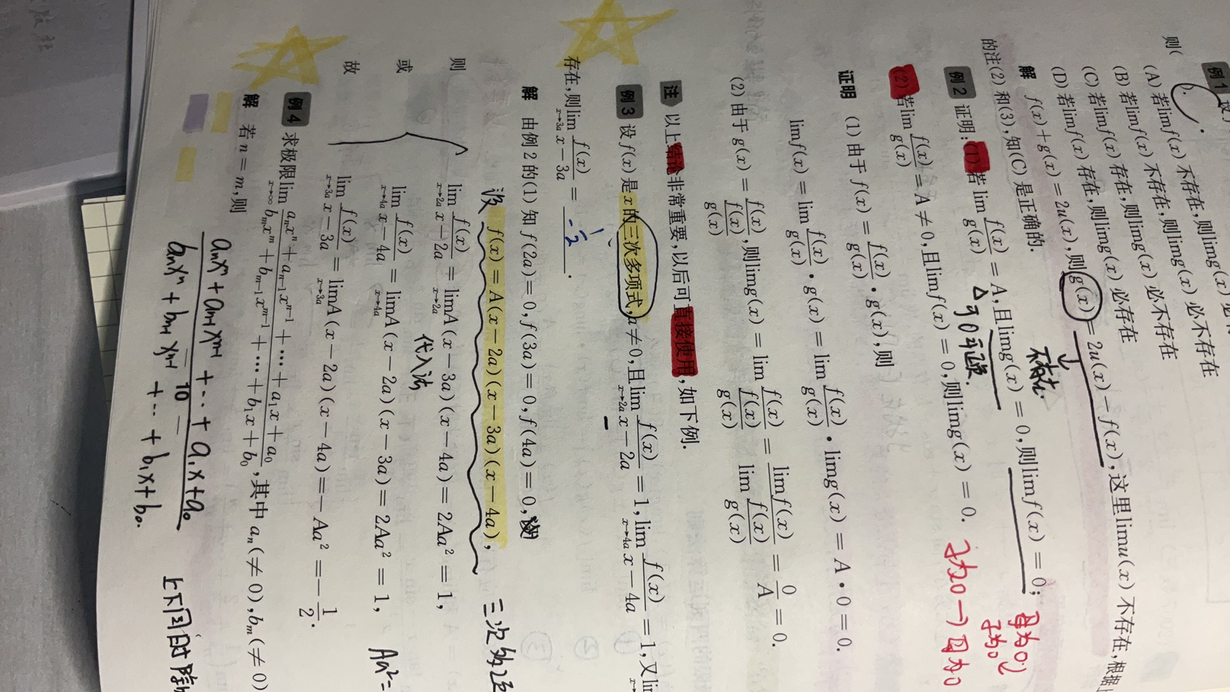 例1
则( ).
(A) 若limf(x) 不存在,则limg(x) 必不存在
(B) 若limf(x) 不存在,则limg(x) 必存在
(C) 若limf(x) 存在,则limg(x) 必不存在
(D) 若limf(x) 存在,则limg(x) 必存在
解 f(x)+g(x)=2u(x),则g(x)=2u(x)-f(x),这里limu(x) 不存在,根据
的注(2) 和(3),知(C) 是正确的.
不存在
例2 证明:(1)若lim f(x)/g(x)=A,且limg(x)=0,则limf(x)=0;
母为0,
子为0
(2)若lim f(x)/g(x)=A≠0,且limf(x)=0,则limg(x)=0.
子为0→母为0
证明 (1) 由于 f(x)=f(x)/g(x)·g(x),则
limf(x)=lim f(x)/g(x)·g(x)=lim f(x)/g(x)·limg(x)=A·0=0.
(2) 由于 g(x)=f(x)/(f(x)/g(x)),则limg(x)=lim f(x)/(f(x)/g(x))=limf(x)/(lim f(x)/g(x))=0/A=0.
注 以上结论非常重要,以后可直接使用,如下例.
例3 设 f(x) 是 x 的三次多项式,a≠0,且lim x→2a f(x)/(x-2a)=1,lim x→4a f(x)/(x-4a)=1,又
存在,则lim x→3a f(x)/(x-3a)= -1/2 .
解 由例2的(1) 知 f(2a)=0,f(3a)=0,f(4a)=0,
设 f(x)=A(x-2a)(x-3a)(x-4a),
三次
则 lim x→2a f(x)/(x-2a)=lim x→2a A(x-3a)(x-4a)=2Aa²=1,
代入法
或 lim x→4a f(x)/(x-4a)=lim x→4a A(x-2a)(x-3a)=2Aa²=1,
Aa²=
故 lim x→3a f(x)/(x-3a)=lim x→3a A(x-2a)(x-4a)=-Aa²=-1/2.
例4 求极限lim x→∞ (aₙxⁿ+aₙ₋₁xⁿ⁻¹+…+a₁x+a₀)/(bₘxᵐ+bₘ₋₁xᵐ⁻¹+…+b₁x+b₀),其中 aₙ(≠0),bₘ(≠0)
解 若 n=m,则
aₙxⁿ+aₙ₋₁xⁿ⁻¹+…+a₁x+a₀
bₙxⁿ+bₙ₋₁xⁿ⁻¹+…+b₁x+b₀.
上下同时除
10